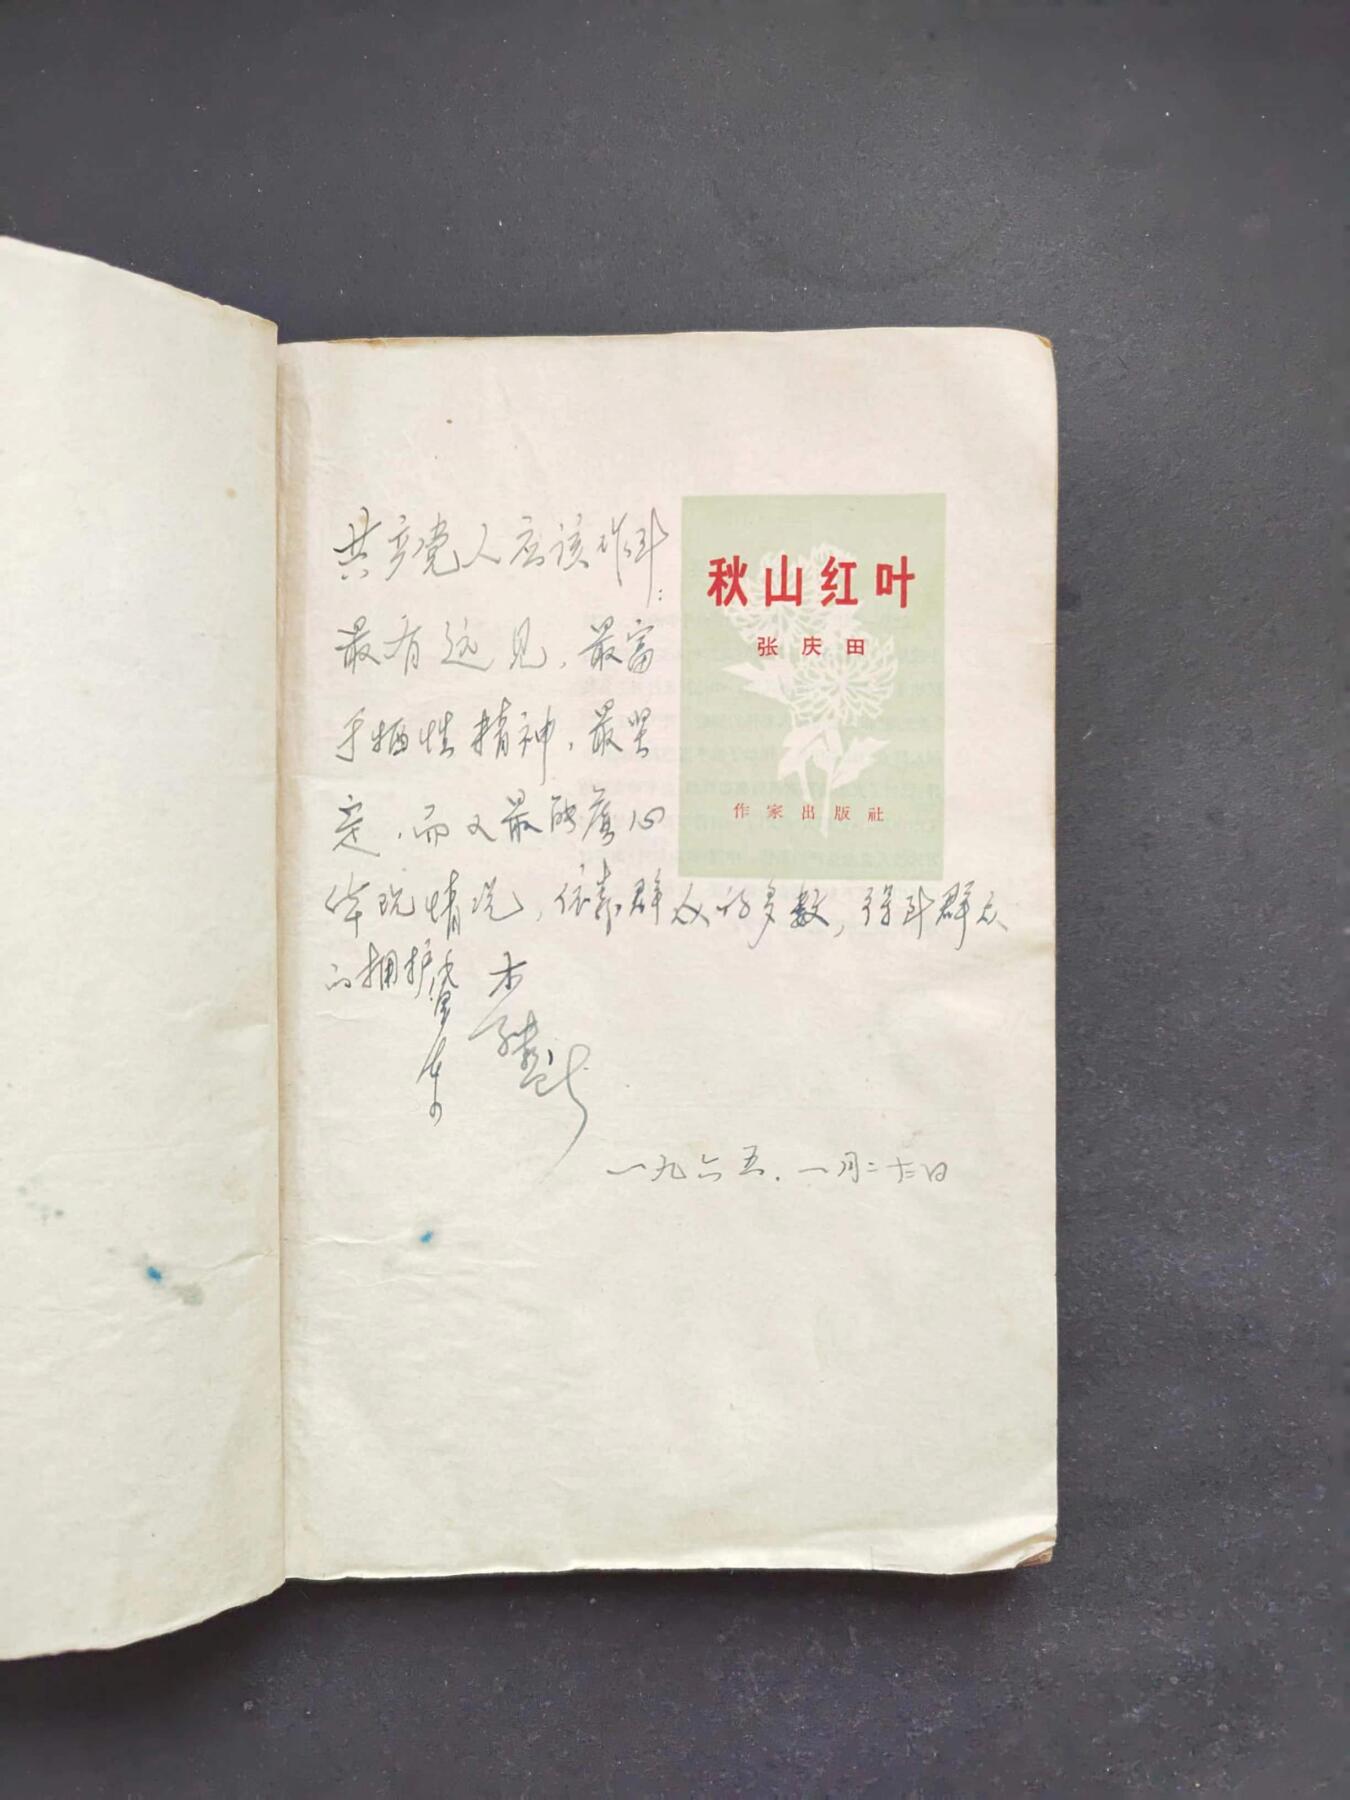 共产党人应该作到：
最有远见，最富
于牺牲精神，最坚
定，而又最能虚心
体现情况，依靠群众的多数，得到群众
的拥护
一九六五．一月
秋山红叶
张庆田
作家出版社